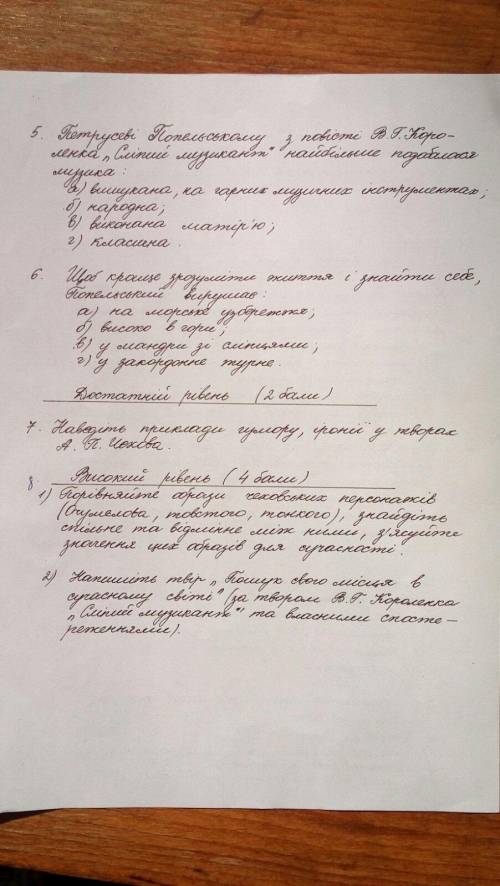 5. Петрусеві Попельському з повісті В.Г. Коро-
ленка „Сліпий музикант" найбільше подобалася
музика:
а) вишукана, на гарних музичних інструментах;
б) народна;
в) виконана матір'ю;
г) класична.
6. Щоб краще зрозуміти життя і знайти себе,
Попельський вирушає:
а) на морське узбережжя;
б) високо в гори;
в) у мандри зі сліпцями;
г) у закордонне турне.
Достатній рівень (2 бали)
7. Наведіть приклади гумору, іронії у творах
А. П. Чехова.
8. Високий рівень (4 бали)
1) Порівняйте образи чеховських персонажів
(Очумелова, товстого, тонкого), знайдіть
спільне та відмінне між ними, з'ясуйте
значення цих образів для сучасності.
2) Напишіть твір „Пошук свого місця в
сучасному світі" (за твором В.Г. Короленка
„Сліпий музикант" та власними спосте-
реженнями).